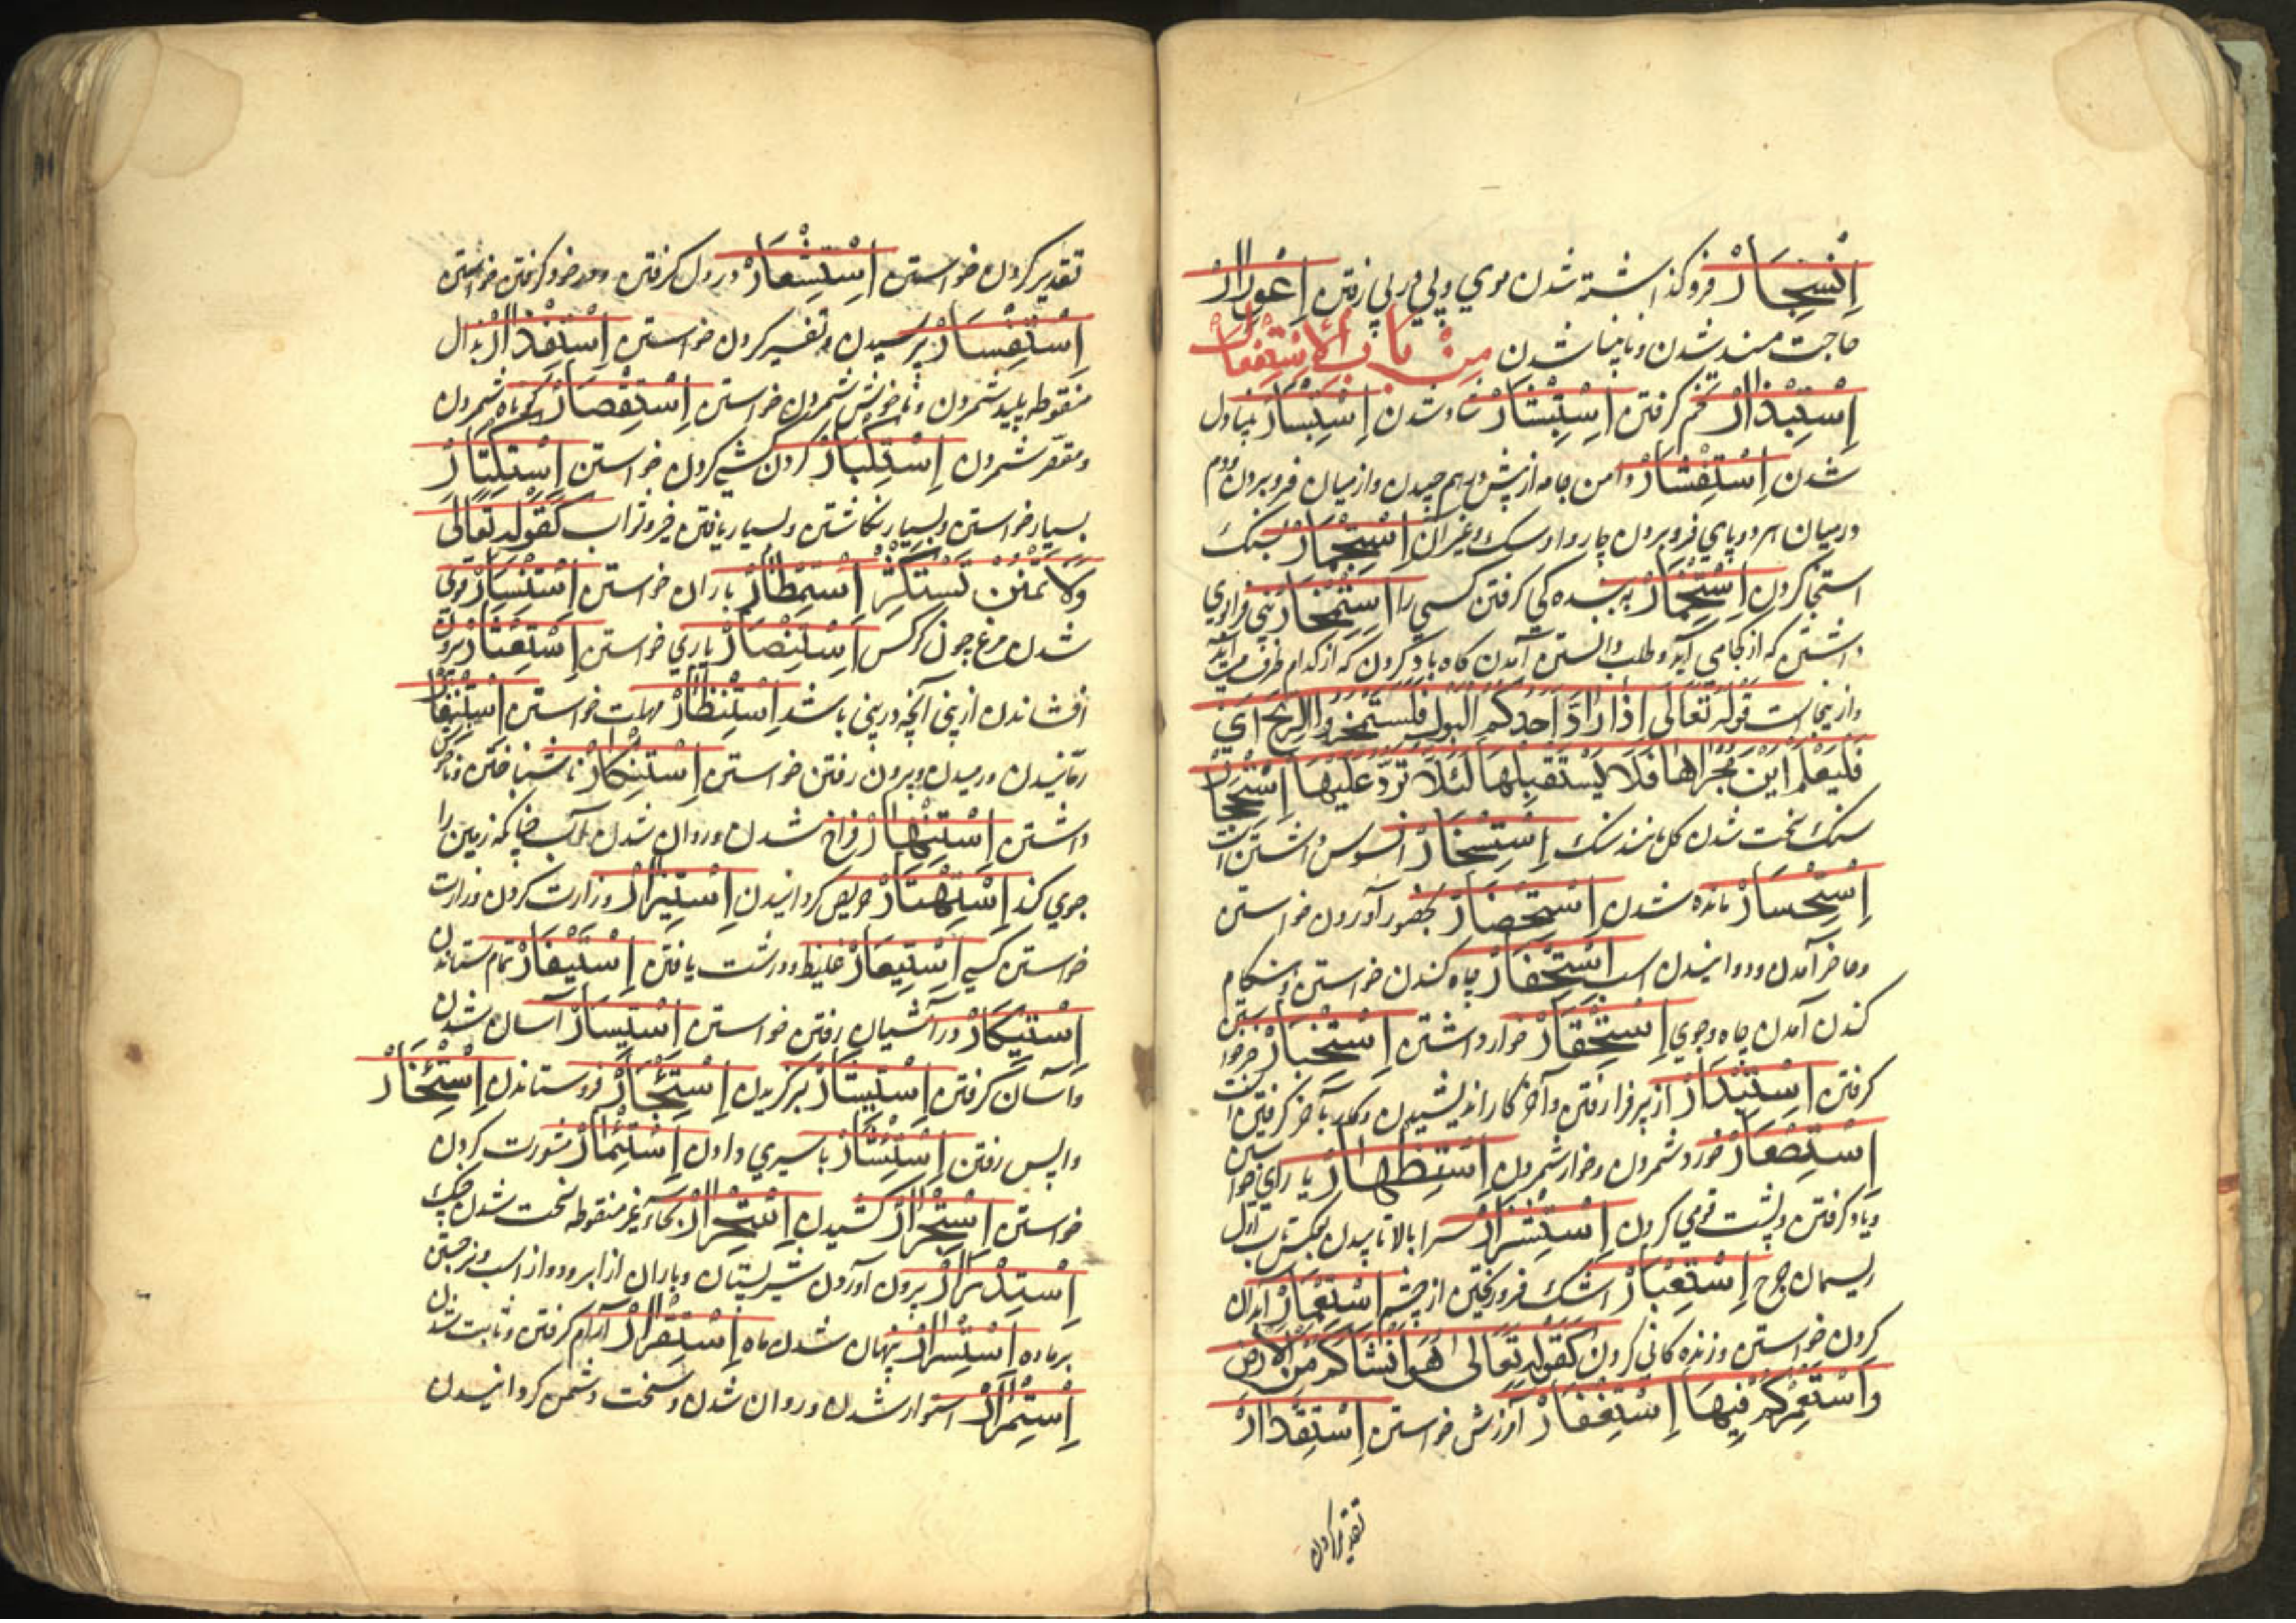 اِنْسِجَارْ فروگذاشته شدن موی و پی در پی رفتن اِعْوِرَارْ
حاجت مند شدن و نابینا شدن مِنْ بَابِ الْاِسْتِفْعَالْ
اِسْتِبْذَارْ تخم گرفتن اِسْتِبْشَارْ شاد شدن اِسْتِبْسَارْ
شدن اِسْتِثْفَارْ دامن جامه از پش و پس هم چیدن و از میان فرو بردن و دم
در میان هر دو پای فرو بردن چاروا و سک و غیر آن اِسْتِجْمَارْ بسنک
استنجا کردن اِسْتِخْمَارْ به بنده کی گرفتن کسی را اِسْتِمْخَارْ
داشتن که از کجا می آید و طلب دانستن آمدن گاه باد کردن که از کدام طرف می آید
و ازینجاست قوله تعالی اذا اراد احدکم البول فلیستمخر الریح ای
فلیعلم این مجراها فلا یستقبلها لئلا ترد علیها اِسْتِحْجَارْ
سنک سخت شدن گل مانند سنک اِسْتِسْخَارْ افسوس داشتن
اِسْتِحْسَارْ مانده شدن اِسْتِحْضَارْ بحضور آوردن خواستن
و حاضر آمدن و دوانیدن اسب اِسْتِحْفَارْ چاه کندن خواستن و هنگام
کندن آمدن چاه و جوی اِسْتِحْقَارْ خوار داشتن اِسْتِخْبَارْ خبر
گرفتن اِسْتِدْبَارْ از پس فرا رفتن و آخر کار اندیشیدن و کار بآخر گرفتن
اِسْتِصْغَارْ خورد شمردن و خوار شمردن اِسْتِظْهَارْ یاری خواستن
و یاد گرفتن و پشت قوی کردن اِسْتِشْزَارْ سرا بالا تابیدن
ریسمان چرخ اِسْتِعْبَارْ اشک فرو ریختن از چشم اِسْتِعْمَارْ آبادان
کردن خواستن و زنده کانی کردن کقوله تعالی هو انشاکم من الارض
واستعمرکم فیها اِسْتِغْفَارْ آمرزش خواستن اِسْتِقْدَارْ
تقدیر کردن
تقدیر کردن خواستن اِسْتِشْعَارْ در دل گرفتن و در خود گرفتن خواستن
اِسْتِفْسَارْ پرسیدن و تفسیر کردن خواستن اِسْتِقْذَارْ بذال
منقوطه پلید شمردن و ناخوش شمردن خواستن اِسْتِقْصَارْ کوتاه شمردن
و مقصر شمردن اِسْتِكْبَارْ گردن کشی کردن خواستن اِسْتِكْثَارْ
بسیار خواستن و بسیار انگاشتن و بسیار یافتن کَقَوْلِهِ تَعَالَى
وَلَا تَمْنُنْ تَسْتَكْثِرُ اِسْتِمْطَارْ باران خواستن اِسْتِنْسَارْ قوی
شدن مرغ چون کرکس اِسْتِنْصَارْ یاری خواستن اِسْتِنْثَارْ بیرون
افشاندن از بینی آنچه در بینی باشد اِسْتِنْظَارْ مهلت خواستن اِسْتِنْفَارْ
رمانیدن و رمیدن و بیرون رفتن خواستن اِسْتِنْكَارْ ناشناختن و ناخوش
داشتن اِسْتِنْهَارْ فراخ شدن و روان شدن آب چنانکه زمین را
جوی کند اِسْتِهْتَارْ حریص گردانیدن اِسْتِيزَارْ وزارت کردن و وزارت
خواستن کسی اِسْتِيعَارْ غلیظ و درشت یافتن اِسْتِيفَارْ تمام ستاندن
اِسْتِيكَارْ در آشیان رفتن خواستن اِسْتِيسَارْ آسان شدن
و آسان گرفتن اِسْتِيثَارْ برگزیدن اِسْتِئْجَارْ فروستاندن اِسْتِئْخَارْ
واپس رفتن اِسْتِئْسَارْ باسیری دادن اِسْتِئْمَارْ مشورت کردن
خواستن اِسْتِجْرَارْ کشیدن اِسْتِحْرَارْ بحاء غیر منقوطه سخت شدن جنک
اِسْتِدْرَارْ بیرون آوردن شیر پستان و باران از ابر و دو از اسب و نر جستن
بر ماده اِسْتِسْرَارْ پنهان شدن ماه اِسْتِقْرَارْ آرام گرفتن و ثابت شدن
اِسْتِمْرَارْ استوار شدن و روان شدن و سخت دشمن گردانیدن